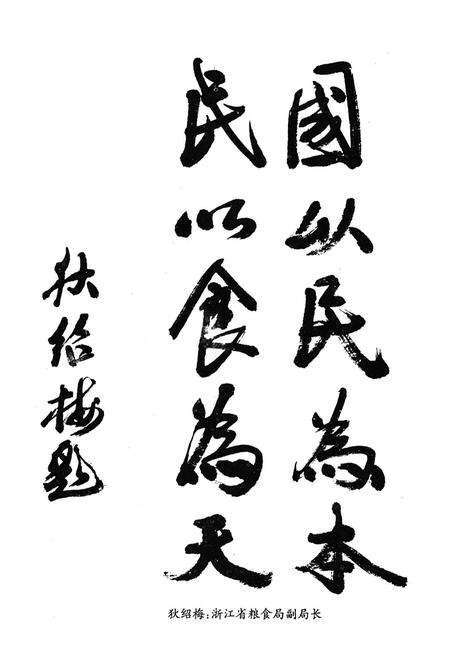 國以民為本
民以食為天
狄绍梅题
狄绍梅:浙江省粮食局副局长